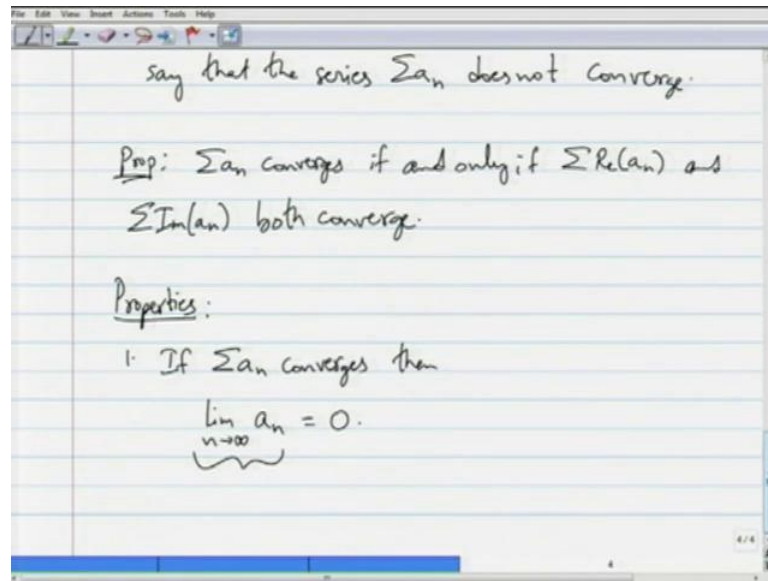 File Edit View Insert Actions Tools Help
say that the series Σaₙ does not converge.
Prop: Σaₙ converges if and only if ΣRe(aₙ) and
ΣIm(aₙ) both converge.
Properties:
1. If Σaₙ converges then
lim aₙ = 0.
n→∞
4/4
4